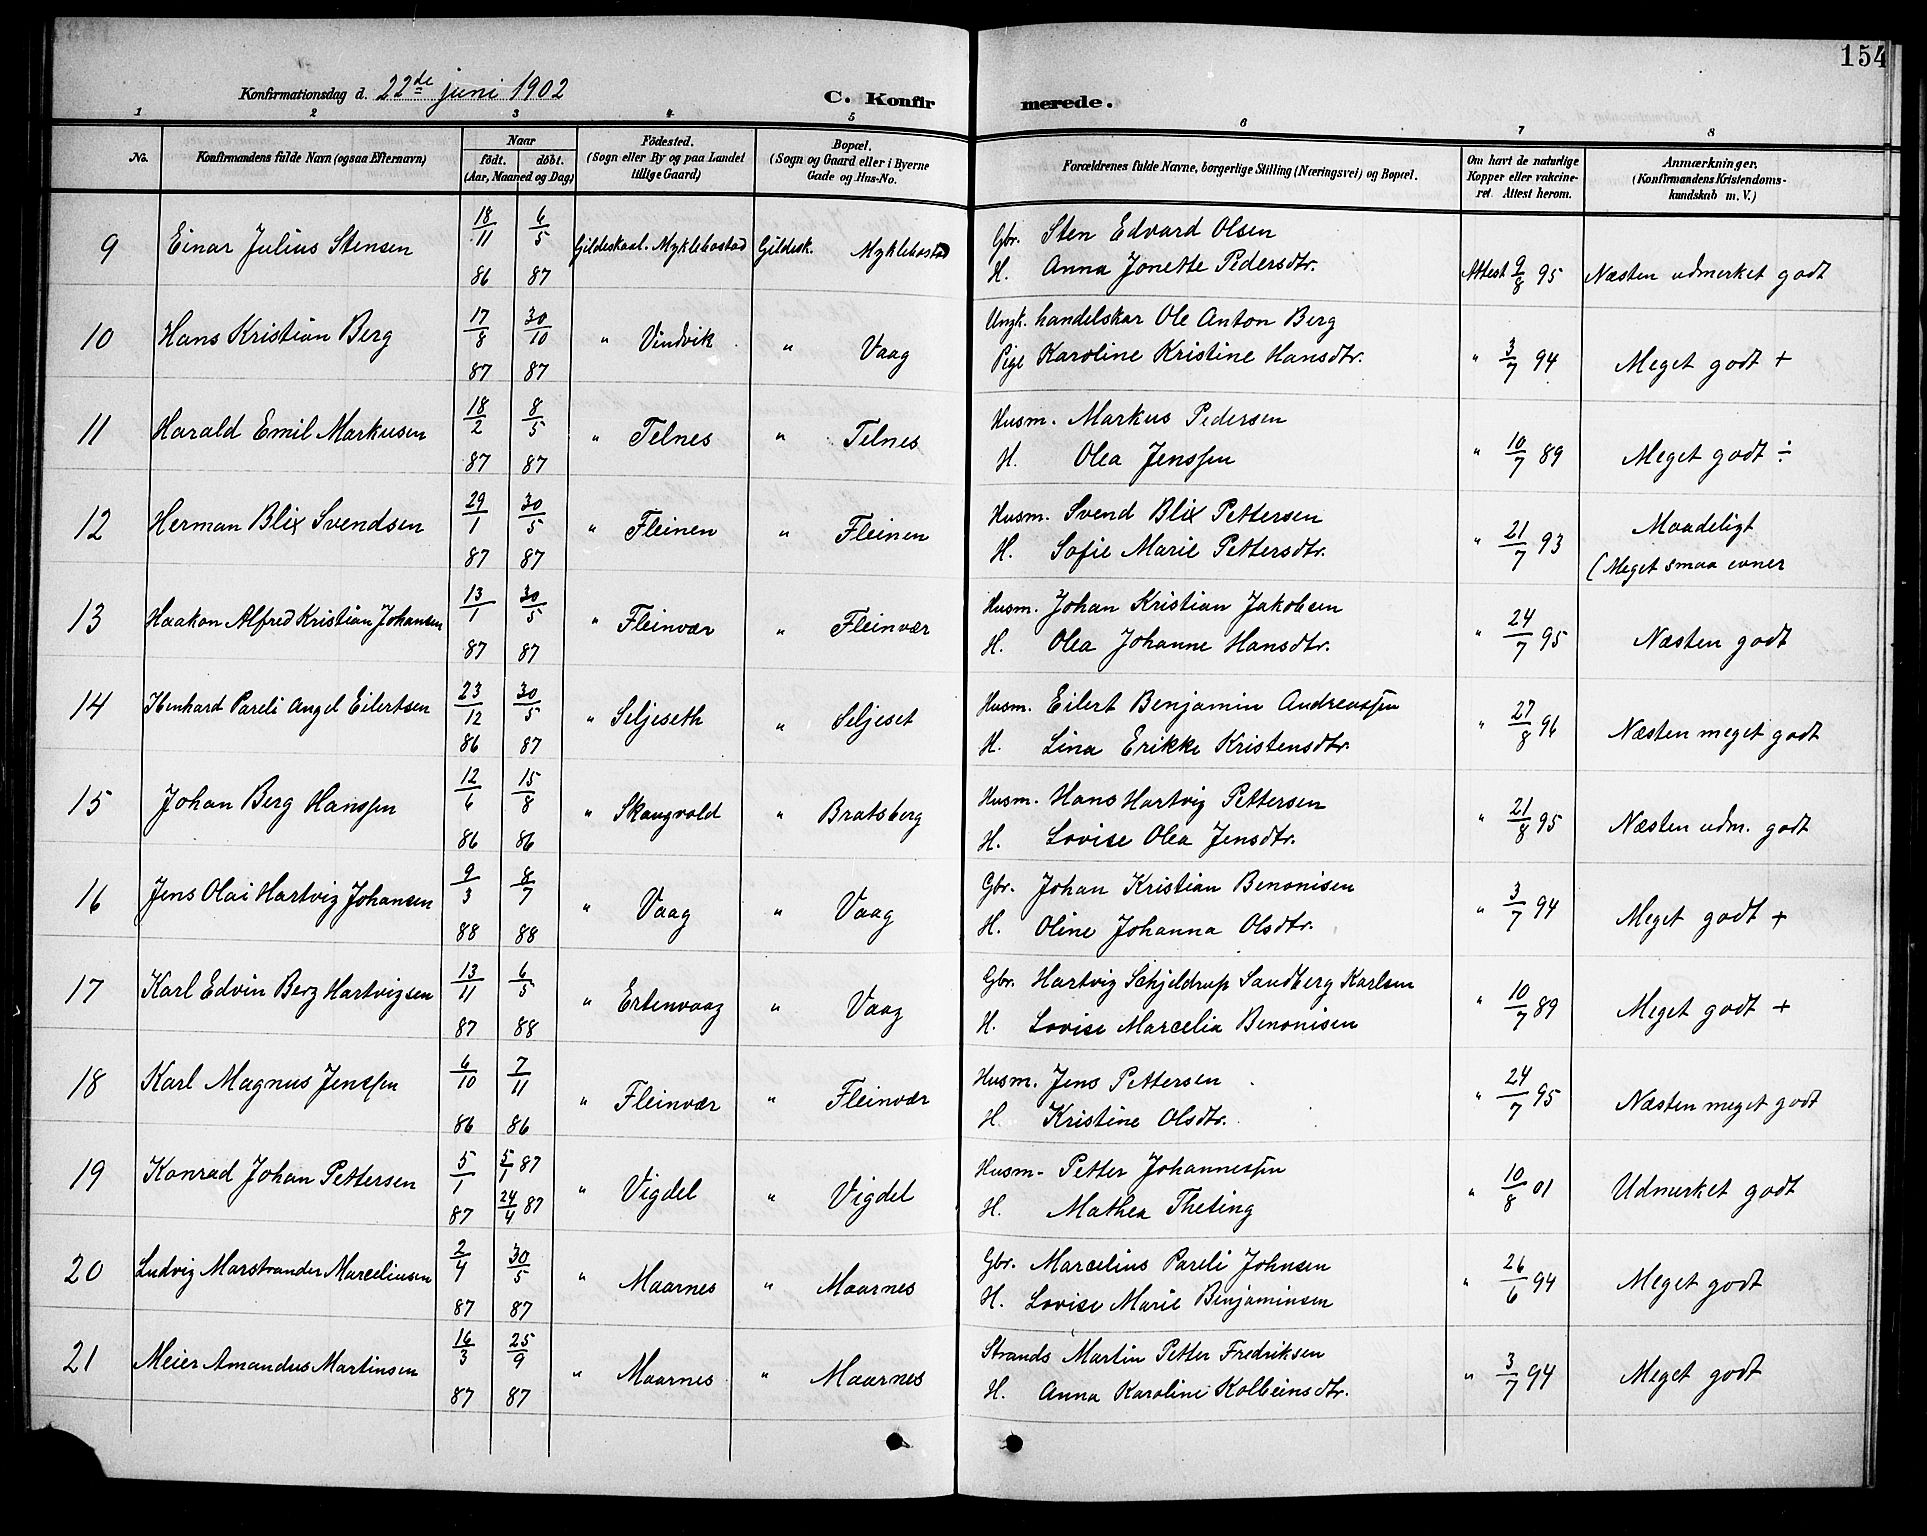 154
Konfirmationsdag d. 22de juni 1902
C. Konfirmerede.
1 2 3 4 5 6 7 8
No. Konfirmandens fulde Navn (ogsaa Efternavn) Naar født. døbt. (Aar, Maaned og Dag) Födested. (Sogn eller By og paa Landet tillige Gaard) Bopæl. (Sogn og Gaard eller i Byerne Gade og Hus-No. Forældrenes fulde Navne, borgerlige Stilling (Næringsvei) og Bopæl. Om havt de naturlige Kopper eller vakcineret. Attest herom. Anmærkninger. (Konfirmandens Kristendomskundskab m. V.)
9 Einar Julius Stensen 18/11 86 6/5 87 Gildeskaal. Myklebostad Gildesk. Myklebostad Gbr. Sten Edvard Olsen
H. Anna Jonette Pedersdtr. Attest 9/8 95 Næsten udmerket godt
10 Hans Kristian Berg 17/8 87 30/10 87 " Vindvik " Vaag Ungk. handelskar Ole Anton Berg
Pige Karoline Kristine Hansdtr. " 3/7 94 Meget godt +
11 Harald Emil Markusen 18/2 87 8/5 87 " Telnes " Telnes Husm. Markus Pedersen
H. Olea Jenssen " 10/7 89 Meget godt ÷
12 Herman Blix Svendsen 29/1 87 30/5 87 " Fleinen " Fleinen Husm. Svend Blix Pettersen
H. Sofie Marie Pettersdtr. " 21/7 93 Maadeligt
(Meget smaa evner
13 Haakon Alfred Kristian Johansen 13/1 87 30/5 87 " Fleinvær " Fleinvær Husm. Johan Kristian Jakobsen
H. Olea Johanne Hansdtr. " 24/7 95 Næsten godt
14 Pareli Angel Eilertsen 23/12 86 30/5 87 " Seljeseth " Seljeset Husm. Eilert Benjamin Andreassen
H. Lina Erikke Kristensdtr. " 27/8 96 Næsten meget godt
15 Johan Berg Hanssen 12/6 86 15/8 86 " Skaugvold " Bratsberg Husm. Hans Hartvig Pettersen
H. Lovise Olea Jensdtr. " 21/8 95 Næsten udm. godt
16 Jens Olai Hartvig Johansen 9/3 88 8/7 88 " Vaag " Vaag Gbr. Johan Kristian Benonisen
H. Oline Johanna Olsdtr. " 3/7 94 Meget godt +
17 Karl Edvin Berg Hartvigsen 13/11 87 6/5 88 " Ertenvaag " Vaag Gbr. Hartvig Schjeldrup Sandberg Karlsen
H. Lovise Marcelia Benonisen " 10/7 89 Meget godt +
18 Karl Magnus Jenssen 6/10 86 7/11 86 " Fleinvær " Fleinvær Husm. Jens Pettersen
H. Kristine Olsdtr. " 24/7 95 Næsten meget godt
19 Konrad Johan Pettersen 5/1 87 5/1 87 24/4 87 " Vigdel " Vigdel Husm. Petter Johannessen
H. Mathea Theting " 10/8 01 Udmerket godt
20 Ludvig Marstrander Marceliusen 2/4 87 30/5 87 " Maarnes " Maarnes Gbr. Marcelius Pareli Johnsen
H. Lovise Marie Benjaminsen " 26/6 94 Meget godt
21 Meier Amandus Martinsen 16/3 87 25/9 87 " Maarnes " Maarnes Strands Martin Petter Fredriksen
H. Anna Karoline Kolbeinsdtr. " 3/7 94 Meget godt